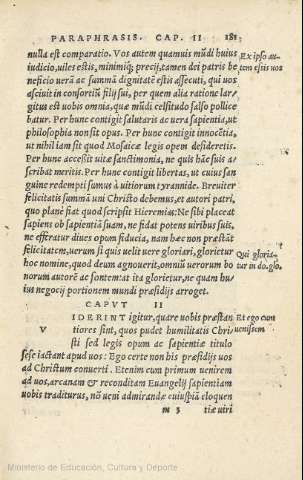 PARAPHRASIS. CAP. II 181
nulla est comparatio. Vos autem quamuis mũdi huius
iudicio, uiles estis, minimiq; precij, tamen dei patris be
neficio uerã ac summã dignitatẽ estis assecuti, qui uos
asciuit in consortiũ filij sui, per quem alia ratione lar
gitus est uobis omnia, quæ mũdi celsitudo falso pollice
batur. Per hunc contigit salutaris ac uera sapientia, ut
philosophia non sit opus. Per hunc contigit innocẽtia,
ut nihil iam sit quod Mosaicæ legis opem desideretis.
Per hunc accessit uitæ sanctimonia, ne quis hæc suis a-
scribat meritis. Per hunc contigit libertas, ut cuius san
guine redempti sumus à uitiorum tyrannide. Breuiter
felicitatis summã uni Christo debemus, et autori patri,
quo planè fiat quod scripsit Hieremias: Ne sibi placeat
sapiens ob sapientiã suam, ne fidat potens uiribus suis,
ne efferatur diues opum fiducia, nam hæc non præstãt
felicitatem, uerum si quis uelit uere gloriari, glorietur
hoc nomine, quod deum agnouerit, omniũ uerorum bo
norum autorẽ ac fontem: at ita glorietur, ne quam hu
ius negocij portionem mundi præsidijs arroget.
Ex ipso au-
tem estis uos
Qui gloria-
tur in do. glo.
CAPVT II
VIDERINT igitur, quare uobis præstan
tiores sint, quos pudet humilitatis Chri
sti sed legis opum ac sapientiæ titulo
sese iactant apud uos: Ego certe non his præsidijs uos
ad Christum conuerti. Etenim cum primum uenirem
ad uos, arcanam & reconditam Euangelij sapientiam
uobis traditurus, nõ ueni admirandæ cuiuspiã eloquen
Et ego cum
uenissem
m 5 tiæ uiri
Ministerio de Educación, Cultura y Deporte